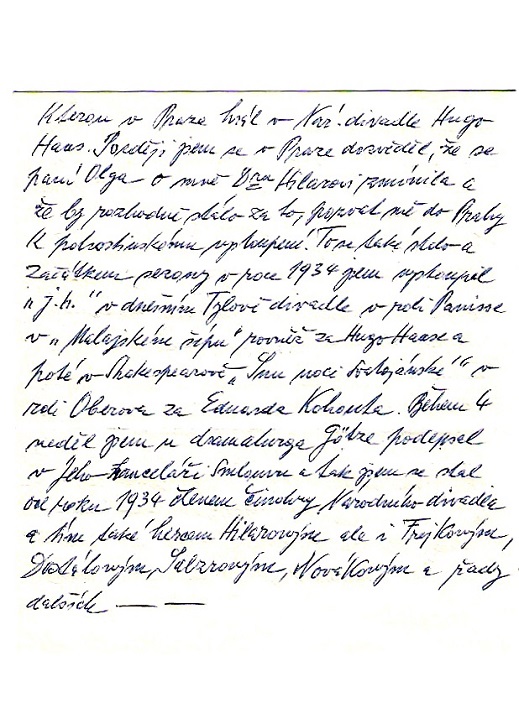 kterou v Praze hrál v Nár. divadle Hugo
Haas. Později jsem se v Praze dozvěděl, že se
paní Olga o mně Dru Hilarovi zmínila a
že by rozhodně stálo za to, pozvat mě do Prahy
k pohostinskému vystoupení. To se také stalo a
začátkem sezony v roce 1934 jsem vystoupil
"j. h." v dnešním Tylově divadle v roli Panisse
v "Malajském šípu" rovněž za Hugo Haase a
poté v Shakespearově "Snu noci svatojánské" v
roli Oberona za Eduarda Kohouta. Během 4
neděl jsem u dramaturga Götze podepsal
v jeho kanceláři smlouvu a tak jsem se stal
od roku 1934 členem činohry Národního divadla
a tím také hercem Hilarovým ale i Frejkovým,
Dostalovým, Salzrovým, Novákovým a řady
dalších — —